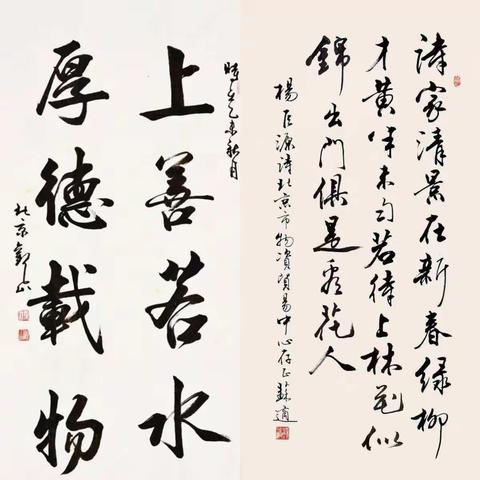 詩家清景在新春綠柳
才黃半未勻若待上林花似
錦出門俱是看花人
楊巨源詩北京市物資貿易中心存正蘇適
時在乙未秋月
上善若水
厚德載物
北京